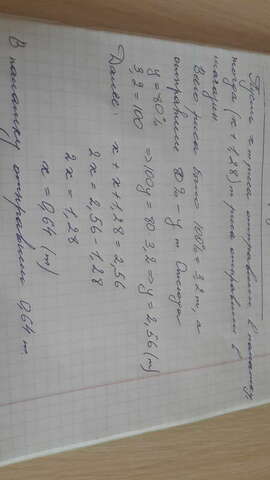 Пусть x т риса отправили в палатку,
тогда (x + 1,28) т риса отправили в
магазин.
Всего риса было 100% = 3,2 т, а
отправили 80% - y т. Отсюда
y = 80%
3,2 = 100 => 100y = 80·3,2 => y = 2,56 (т)
Далее: x + x + 1,28 = 2,56
2x = 2,56 - 1,28
2x = 1,28
x = 0,64 (т)
В палатку отправили 0,64 т.